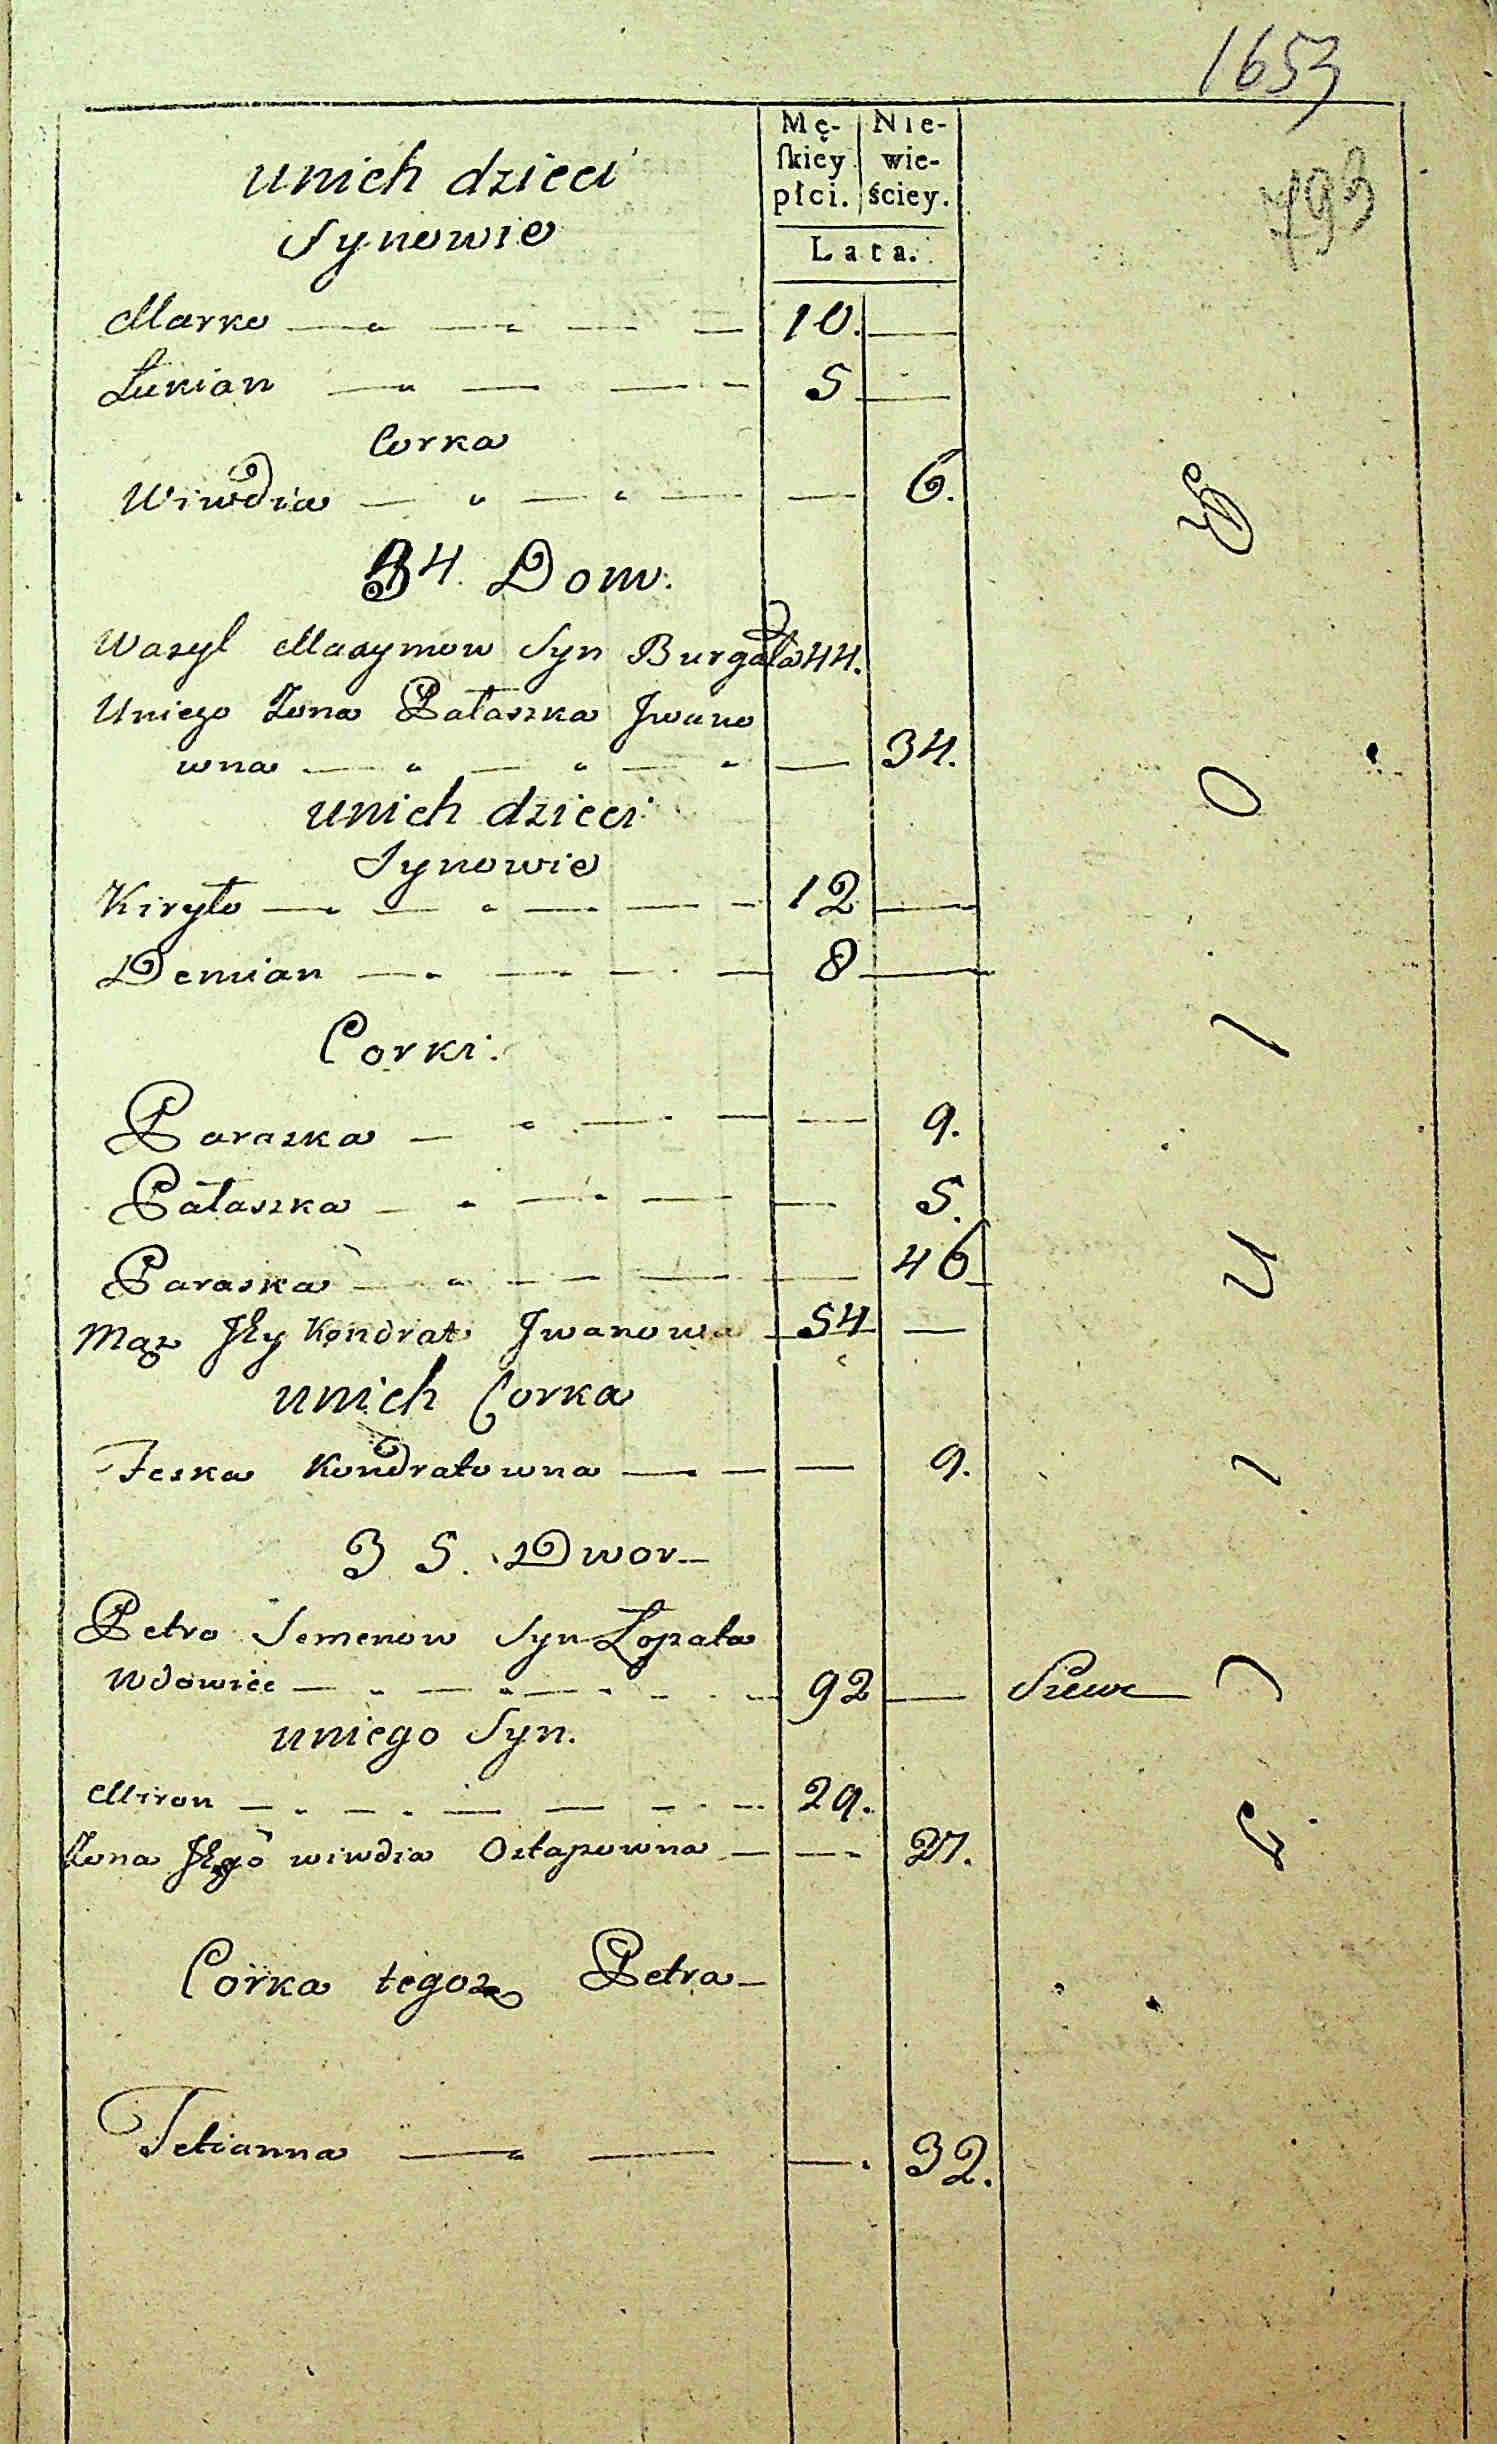 1653
Mę-
skiey
płci.
Nie-
wie-
ściey.
Lata.
793
unich dzieci
Synowie
Marko 10.
Łukian 5
Corka
Wiwdia 6.
34. Dom.
Wasyl Maxymow Syn Burgała 44.
Uniego Zona Pałaszka Jwano
wna 34.
unich dzieci
Synowie
Kiryło 12
Demian 8
Corki.
Paraska 9.
Pałaszka 5.
Paraska 46
Mąz Jey Kondrat Jwanow 54
unich Corka
Jeska Kondratowna 9.
35. Dwor
Petro Semenow Syn Łopata
Wdowiec 92
uniego Syn.
Miron 29.
Zona Jego wiwdia Ostapowna 27.
Corka tegoz Petra
Tetianna 32.